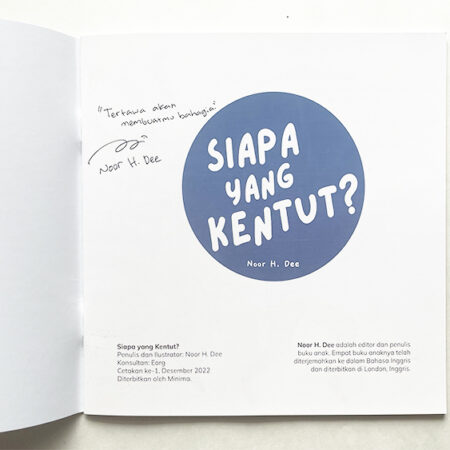 "Tertawa akan
membuatmu bahagia."
Noor H. Dee
SIAPA
YANG
KENTUT?
Noor H. Dee
Siapa yang Kentut?
Penulis dan Ilustrator: Noor H. Dee
Konsultan: Eorg
Cetakan ke-1, Desember 2022
Diterbitkan oleh Minima.
Noor H. Dee adalah editor dan penulis
buku anak. Empat buku anaknya telah
diterjemahkan ke dalam Bahasa Inggris
dan diterbitkan di London, Inggris.